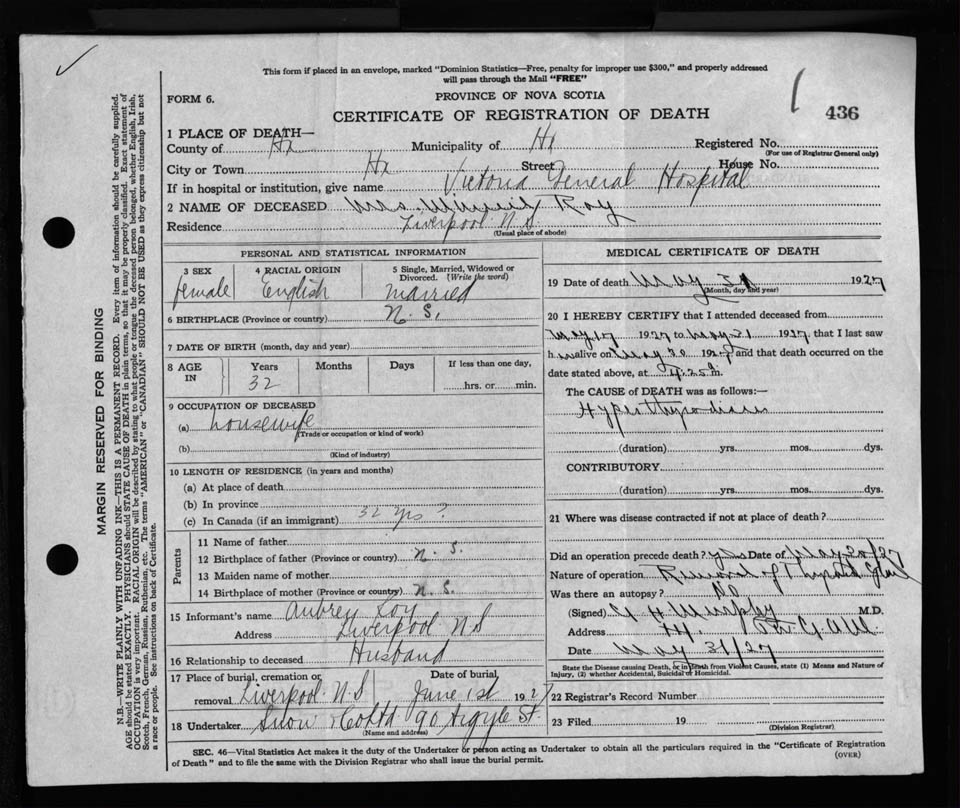 This form if placed in an envelope, marked "Dominion Statistics—Free, penalty for improper use $300," and properly addressed
will pass through the Mail "FREE"
FORM 6.
PROVINCE OF NOVA SCOTIA
436
CERTIFICATE OF REGISTRATION OF DEATH
1 PLACE OF DEATH—
County of Hx Municipality of Hx Registered No.
(For use of Registrar General only)
City or Town Hx Street House No.
If in hospital or institution, give name Victoria General Hospital
2 NAME OF DECEASED Mrs. Winnie Roy
Residence Liverpool N.S
(Usual place of abode)
PERSONAL AND STATISTICAL INFORMATION
3 SEX 4 RACIAL ORIGIN 5 Single, Married, Widowed or Divorced. (Write the word)
female English married
6 BIRTHPLACE (Province or country) N. S.
7 DATE OF BIRTH (month, day and year)
8 AGE IN Years Months Days If less than one day,
32 hrs. or min.
9 OCCUPATION OF DECEASED
(a) housewife
(Trade or occupation or kind of work)
(b)
(Kind of industry)
10 LENGTH OF RESIDENCE (in years and months)
(a) At place of death
(b) In province
(c) In Canada (if an immigrant) 32 yrs ?
Parents
11 Name of father
12 Birthplace of father (Province or country) N. S.
13 Maiden name of mother
14 Birthplace of mother (Province or country) N. S.
15 Informant's name Aubrey Roy
Address Liverpool N.S
16 Relationship to deceased Husband
17 Place of burial, cremation or removal Liverpool N.S Date of burial June 1st 1927
18 Undertaker Snow & Co Ltd 90 Argyle St.
(Name and address)
MEDICAL CERTIFICATE OF DEATH
19 Date of death May 31 1927
(Month, day and year)
20 I HEREBY CERTIFY that I attended deceased from
May 17 1927 to May 31 1927 that I last saw
h alive on May 30 1927 and that death occurred on
the date stated above, at 4.25 a m.
The CAUSE OF DEATH was as follows:—
(duration) yrs. mos. dys.
CONTRIBUTORY
(duration) yrs. mos. dys.
21 Where was disease contracted if not at place of death?
Did an operation precede death? yes Date of May 30/27
Nature of operation Removal of Thyroid Gland
Was there an autopsy? No
(Signed) G H Murphy M.D.
Address Hx.
Date May 31/27
State the Disease causing Death, or in Death from Violent Causes, state (1) Means and Nature of
Injury, (2) whether Accidental, Suicidal or Homicidal.
22 Registrar's Record Number
23 Filed 19
(Division Registrar)
SEC. 46—Vital Statistics Act makes it the duty of the Undertaker or person acting as Undertaker to obtain all the particulars required in the "Certificate of Registration
of Death" and to file the same with the Division Registrar who shall issue the burial permit.
(OVER)
MARGIN RESERVED FOR BINDING
N.B.—WRITE PLAINLY WITH UNFADING INK—THIS IS A PERMANENT RECORD. Every item of information should be carefully supplied.
AGE should be stated EXACTLY. PHYSICIANS should STATE CAUSE OF DEATH in plain terms, so that it may be properly classified. Exact statement of
OCCUPATION is very important. RACIAL ORIGIN will be described by stating to what people or tongue the deceased person belonged, whether English, Irish,
Scotch, French, German, Russian, Ruthenian, etc. The terms "AMERICAN" or "CANADIAN" SHOULD NOT BE USED as they express citizenship but not
a race or people. See instructions on back of Certificate.